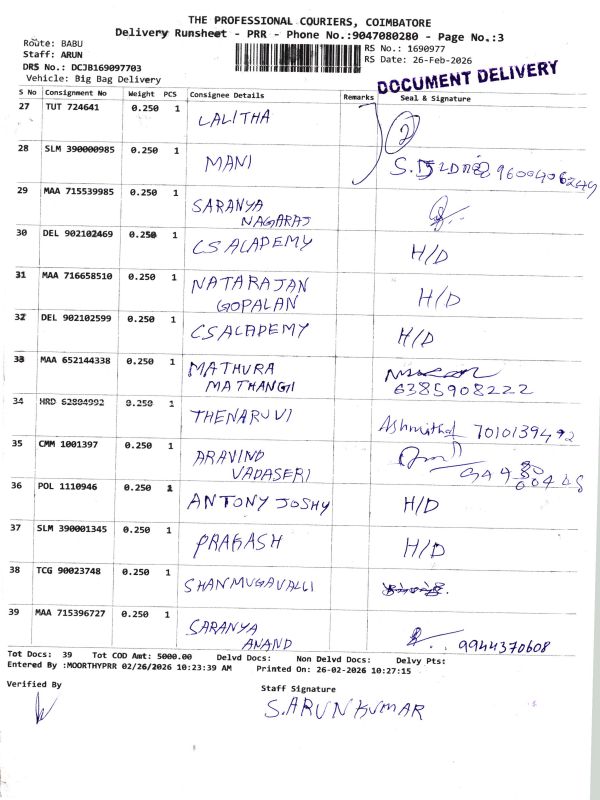 THE PROFESSIONAL COURIERS, COIMBATORE
Delivery Runsheet - PRR - Phone No.:9047080280 - Page No.:3
Route: BABU
Staff: ARUN
DRS No.: DCJB169097703
Vehicle: Big Bag Delivery
RS No.: 1690977
RS Date: 26-Feb-2026
DOCUMENT DELIVERY
S No Consignment No Weight PCS Consignee Details Remarks Seal & Signature
27 TUT 724641 0.250 1 LALITHA 2
28 SLM 390000985 0.250 1 MANI
29 MAA 715539985 0.250 1 SARANYA
NAGARAJ
30 DEL 902102469 0.250 1 CS ACADEMY H/D
31 MAA 716658510 0.250 1 NATARAJAN H/D
GOPALAN
32 DEL 902102599 0.250 1 CS ACADEMY H/D
33 MAA 652144338 0.250 1 MATHURA
MATHANGI 6385908222
34 HRD 62804992 0.250 1 THENARUVI Ashmitha 7010139492
35 CMM 1001397 0.250 1 ARAVIND
VADASERI
36 POL 1110946 0.250 1 ANTONY JOSHY H/D
37 SLM 390001345 0.250 1 PRAGASH H/D
38 TCG 90023748 0.250 1 SHANMUGAVALLI
39 MAA 715396727 0.250 1 SARANYA
ANAND 9944370608
Tot Docs: 39 Tot COD Amt: 5000.00 Delvd Docs: Non Delvd Docs: Delvy Pts:
Entered By :MOORTHYPRR 02/26/2026 10:23:39 AM Printed On: 26-02-2026 10:27:15
Verified By
Staff Signature
S.ARUNKUMAR